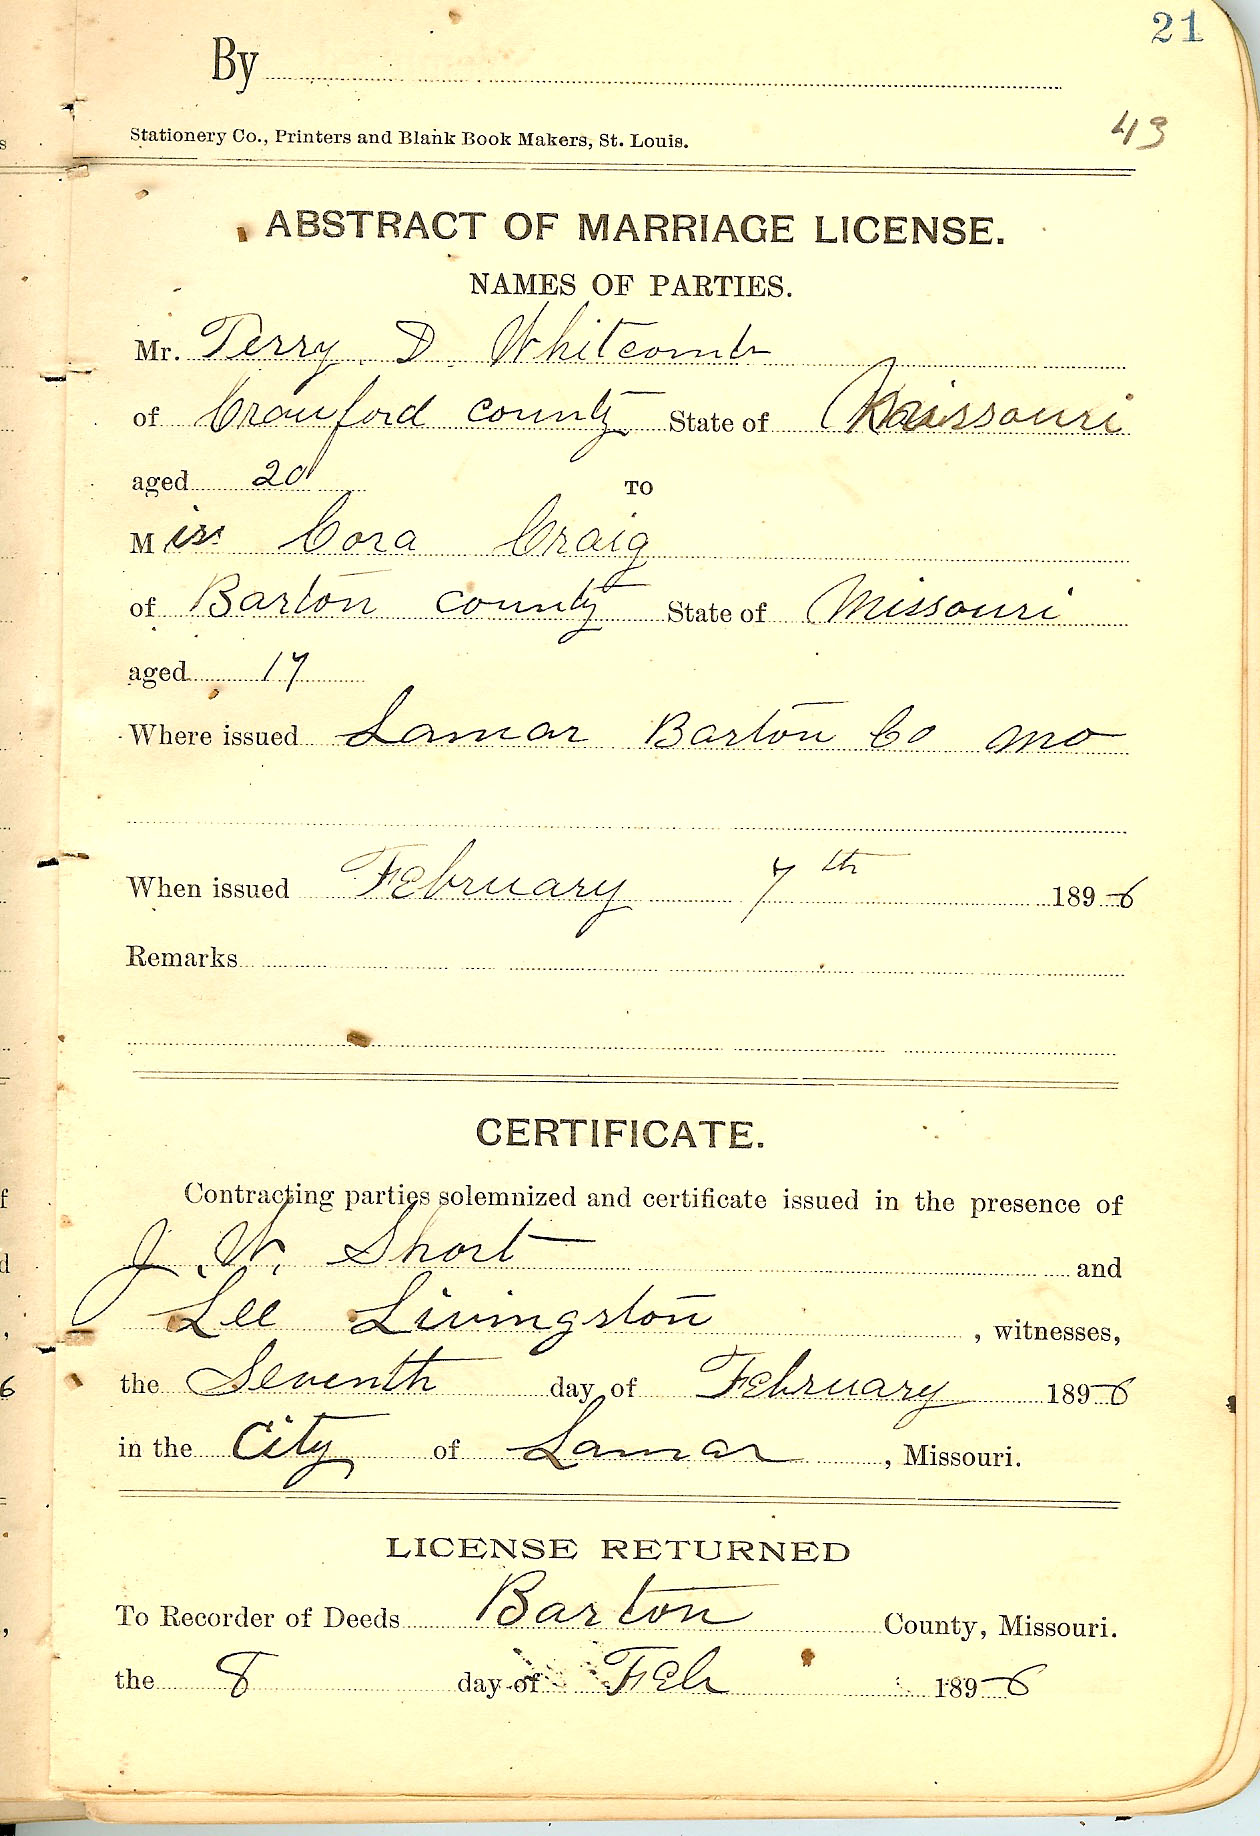 21
By
Stationery Co., Printers and Blank Book Makers, St. Louis.
43
ABSTRACT OF MARRIAGE LICENSE.
NAMES OF PARTIES.
Mr. Perry D. Whitcomb
of Crawford county State of Missouri
aged 20
TO
Miss Cora Craig
of Barton county State of Missouri
aged 17
Where issued Lamar Barton Co Mo
When issued February 7th 1896
Remarks
CERTIFICATE.
Contracting parties solemnized and certificate issued in the presence of
J. W. Short and
Lee Livingston, witnesses,
the Seventh day of February 1896
in the City of Lamar, Missouri.
LICENSE RETURNED
To Recorder of Deeds Barton County, Missouri.
the 8 day of Feb 1896